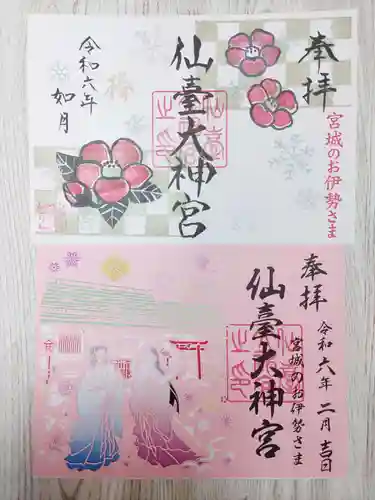 奉拝
宮城のお伊勢さま
仙臺大神宮
令和六年
如月
奉拝
令和六年二月吉日
宮城のお伊勢さま
仙臺大神宮